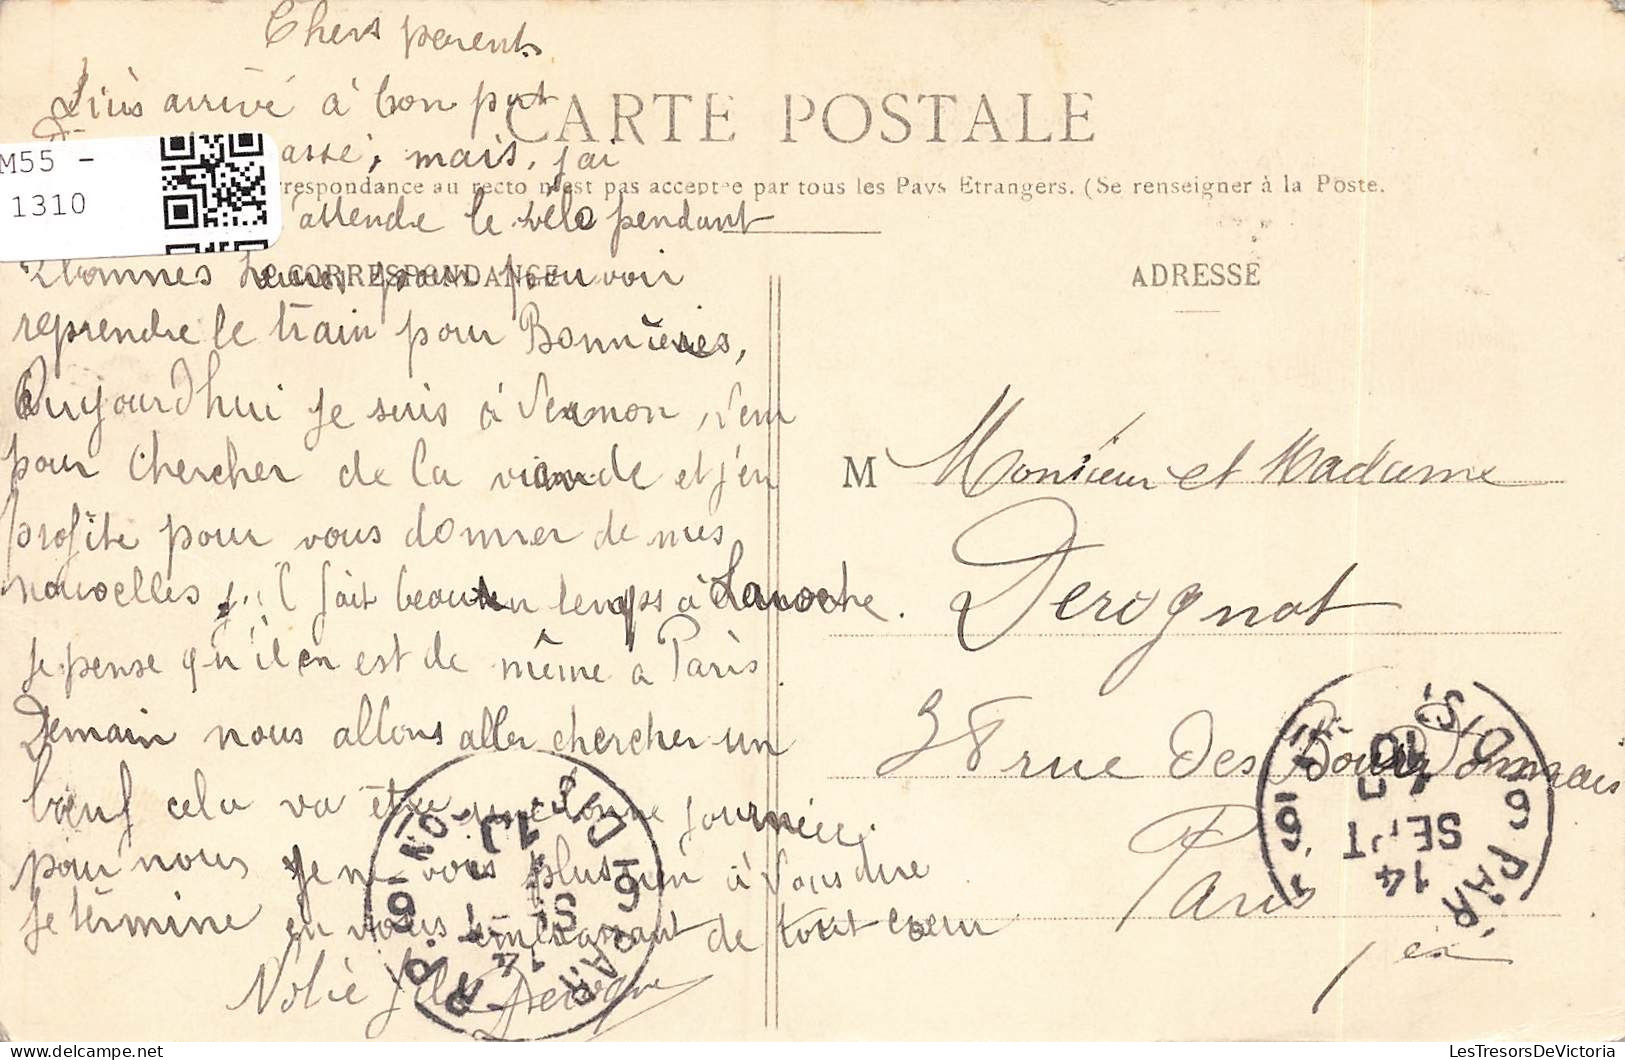 Chers parents
Suis arrivé à bon port
CARTE POSTALE
M55 -
1310
assé, mais, j'ai
respondance au recto n'est pas acceptée par tous les Pays Etrangers. (Se renseigner à la Poste.
attendre le vélo pendant
heures pour pouvoir
CORRESPONDANCE
ADRESSE
reprendre le train pour Bonnières,
Aujourdhui je suis à Vernon, s'en
pour chercher de la viande et j'en
profite pour vous donner de mes
nouvelles, il fait beau temps à Laroche.
Je pense qu'il en est de même a Paris
Demain nous allons aller chercher un
bœuf cela va être une bonne journée
pour nous Je ne vois plus rien à vous dire
Je termine en vous embrassant de tout cœur
Votre fils Derognat
M Monsieur et Madame
Derognat
38 rue des Bourdonnais
Paris
1er
PARIS
14
SEPT
10
PARIS
14
SEPT
10
LesTresorsDeVictoria.com